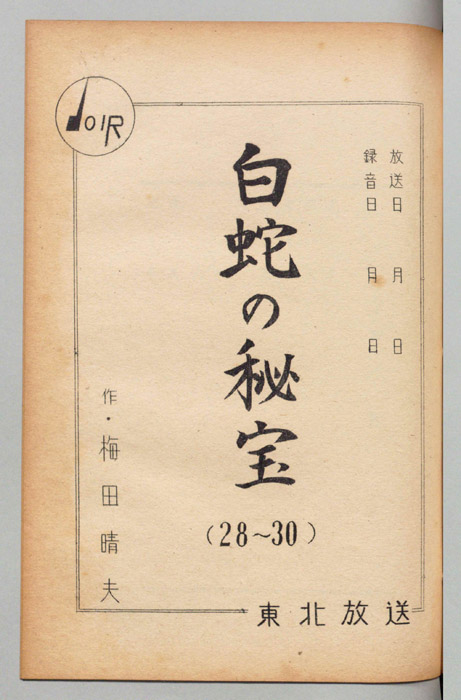 JOIR
放送日 月 日
録音日 月 日
白蛇の秘宝
(28~30)
作・梅田晴夫
東北放送